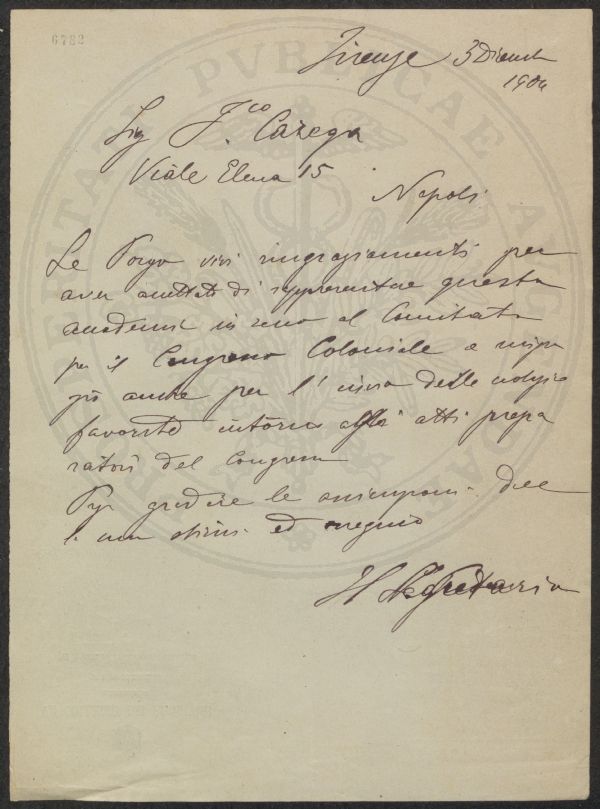 6782
Firenze 3 Dicemb
1904
Sig F.co Carega
Viale Elena 15
Napoli
Le Porgo vivi ringraziamenti per
aver accettato di rappresentare questa
in seno al Comitato
per il Congresso Coloniale e
anche per l' invio delle
favorite intorno agli atti prepa
ratori del Congresso
gradire le
stima ed ossequio
Il Segretario